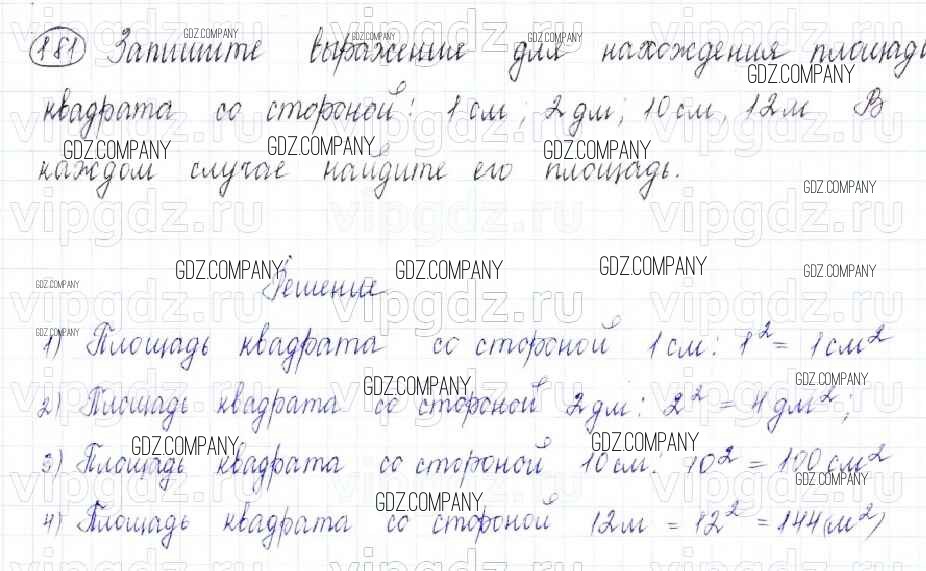 181 Запишите выражения для нахождения площади
квадрата со стороной: 1 см; 2 дм; 10 см, 12 м В
каждом случае найдите его площадь.
Решение
1) Площадь квадрата со стороной 1 см: 1² = 1 см²
2) Площадь квадрата со стороной 2 дм: 2² = 4 дм²;
3) Площадь квадрата со стороной 10 см: 10² = 100 см²
4) Площадь квадрата со стороной 12 м = 12² = 144 (м²)
GDZ.COMPANY
vipgdz.ru